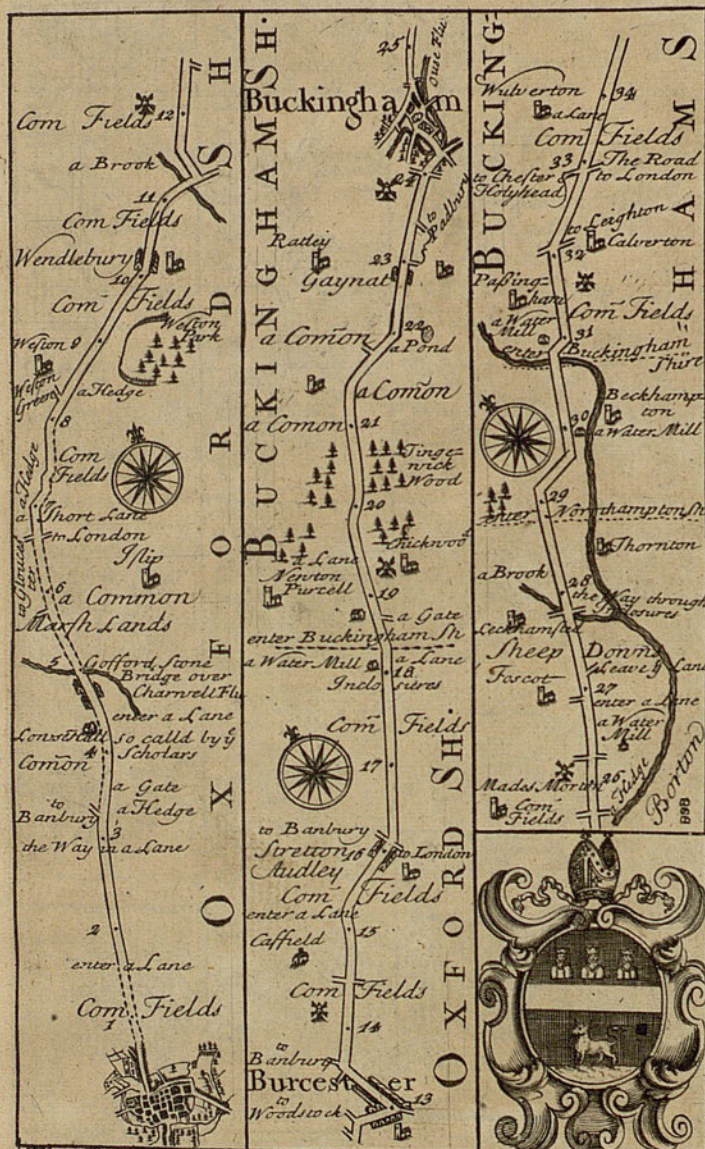 OXFORDSH
Com Fields
12
a Brook
11
Com Fields
Wendlebury
10
Com Fields
Weston 9
Weston
Park
Weston
Green
a Hedge
8
Com
Fields
a Hedge
7
a Short Lane
to London
to Glouces
ter
Islip
6
a Common
Marsh Lands
5
Gofford Stone
Bridge over
Charwell Flu
enter a Lane
so calld by ye
Scholars
4
Comon
a Gate
to
Banbury
a Hedge
3
the Way in a Lane
2
enter a Lane
Com Fields
1
BUCKINGHAMSH.
25
Ouse Flu
Buckingham
24
to Padbury
Ratley
23
Gaynat
22
a Comon
a Pond
a Comon
a Comon
21
Tinge-
wick
Wood
20
Chickwood
a Lane
Newton
Purcell
19
a Gate
enter Buckingham Sh
a Water Mill
a Lane
18
Inclosures
Com Fields
17
OXFORD SH.
to Banbury
Stretton
Audley
16
to London
Com Fields
enter a Lane
15
Caffield
Com Fields
14
to
Banbury
Burcester
13
to
Woodstock
BUCKING=
HAMS
Wulverton
34
a Lane
Com Fields
33
The Road
to London
to Chester &
Holyhead
to Leighton
Calverton
32
Paßing=
ham
Com Fields
a Water
Mill
31
enter Buckingham
Shire
Beckhamp=
ton
30
a Water Mill
29
enter Northampton Sh
Thornton
a Brook
28
the Way through
Inclosures
Leckhamsted
Sheep Downs
Leave ye Lane
Foscot
27
enter a Lane
a Water
Mill
26
a Hedge
Mades Morton
Com
Fields
Borton